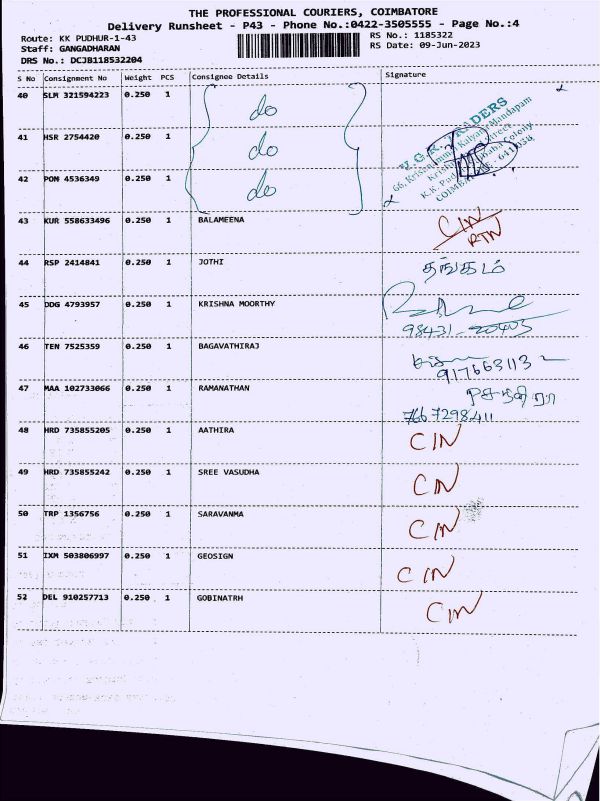 THE PROFESSIONAL COURIERS, COIMBATORE
Delivery Runsheet - P43 - Phone No.:0422-3505555 - Page No.:4
Route: KK PUDHUR-1-43 RS No.: 1185322
Staff: GANGADHARAN RS Date: 09-Jun-2023
DRS No.: DCJB118532204
S No Consignment No Weight PCS Consignee Details Signature
40 SLM 321594223 0.250 1 do
41 HSR 2754420 0.250 1 do
42 PON 4536349 0.250 1 do
66, Krishnamma Kalyana Mandapam
43 KUR 558633496 0.250 1 BALAMEENA CIN
RTN
44 RSP 2414841 0.250 1 JOTHI தங்கடம்
45 DDG 4793957 0.250 1 KRISHNA MOORTHY
98431-20403
46 TEN 7525359 0.250 1 BAGAVATHIRAJ
917663113
47 MAA 102733066 0.250 1 RAMANATHAN
7667298411
48 HRD 735855205 0.250 1 AATHIRA CIN
49 HRD 735855242 0.250 1 SREE VASUDHA CIN
50 TRP 1356756 0.250 1 SARAVANMA CIN
51 IXM 503806997 0.250 1 GEOSIGN CIN
52 DEL 910257713 0.250 1 GOBINATRH CIN